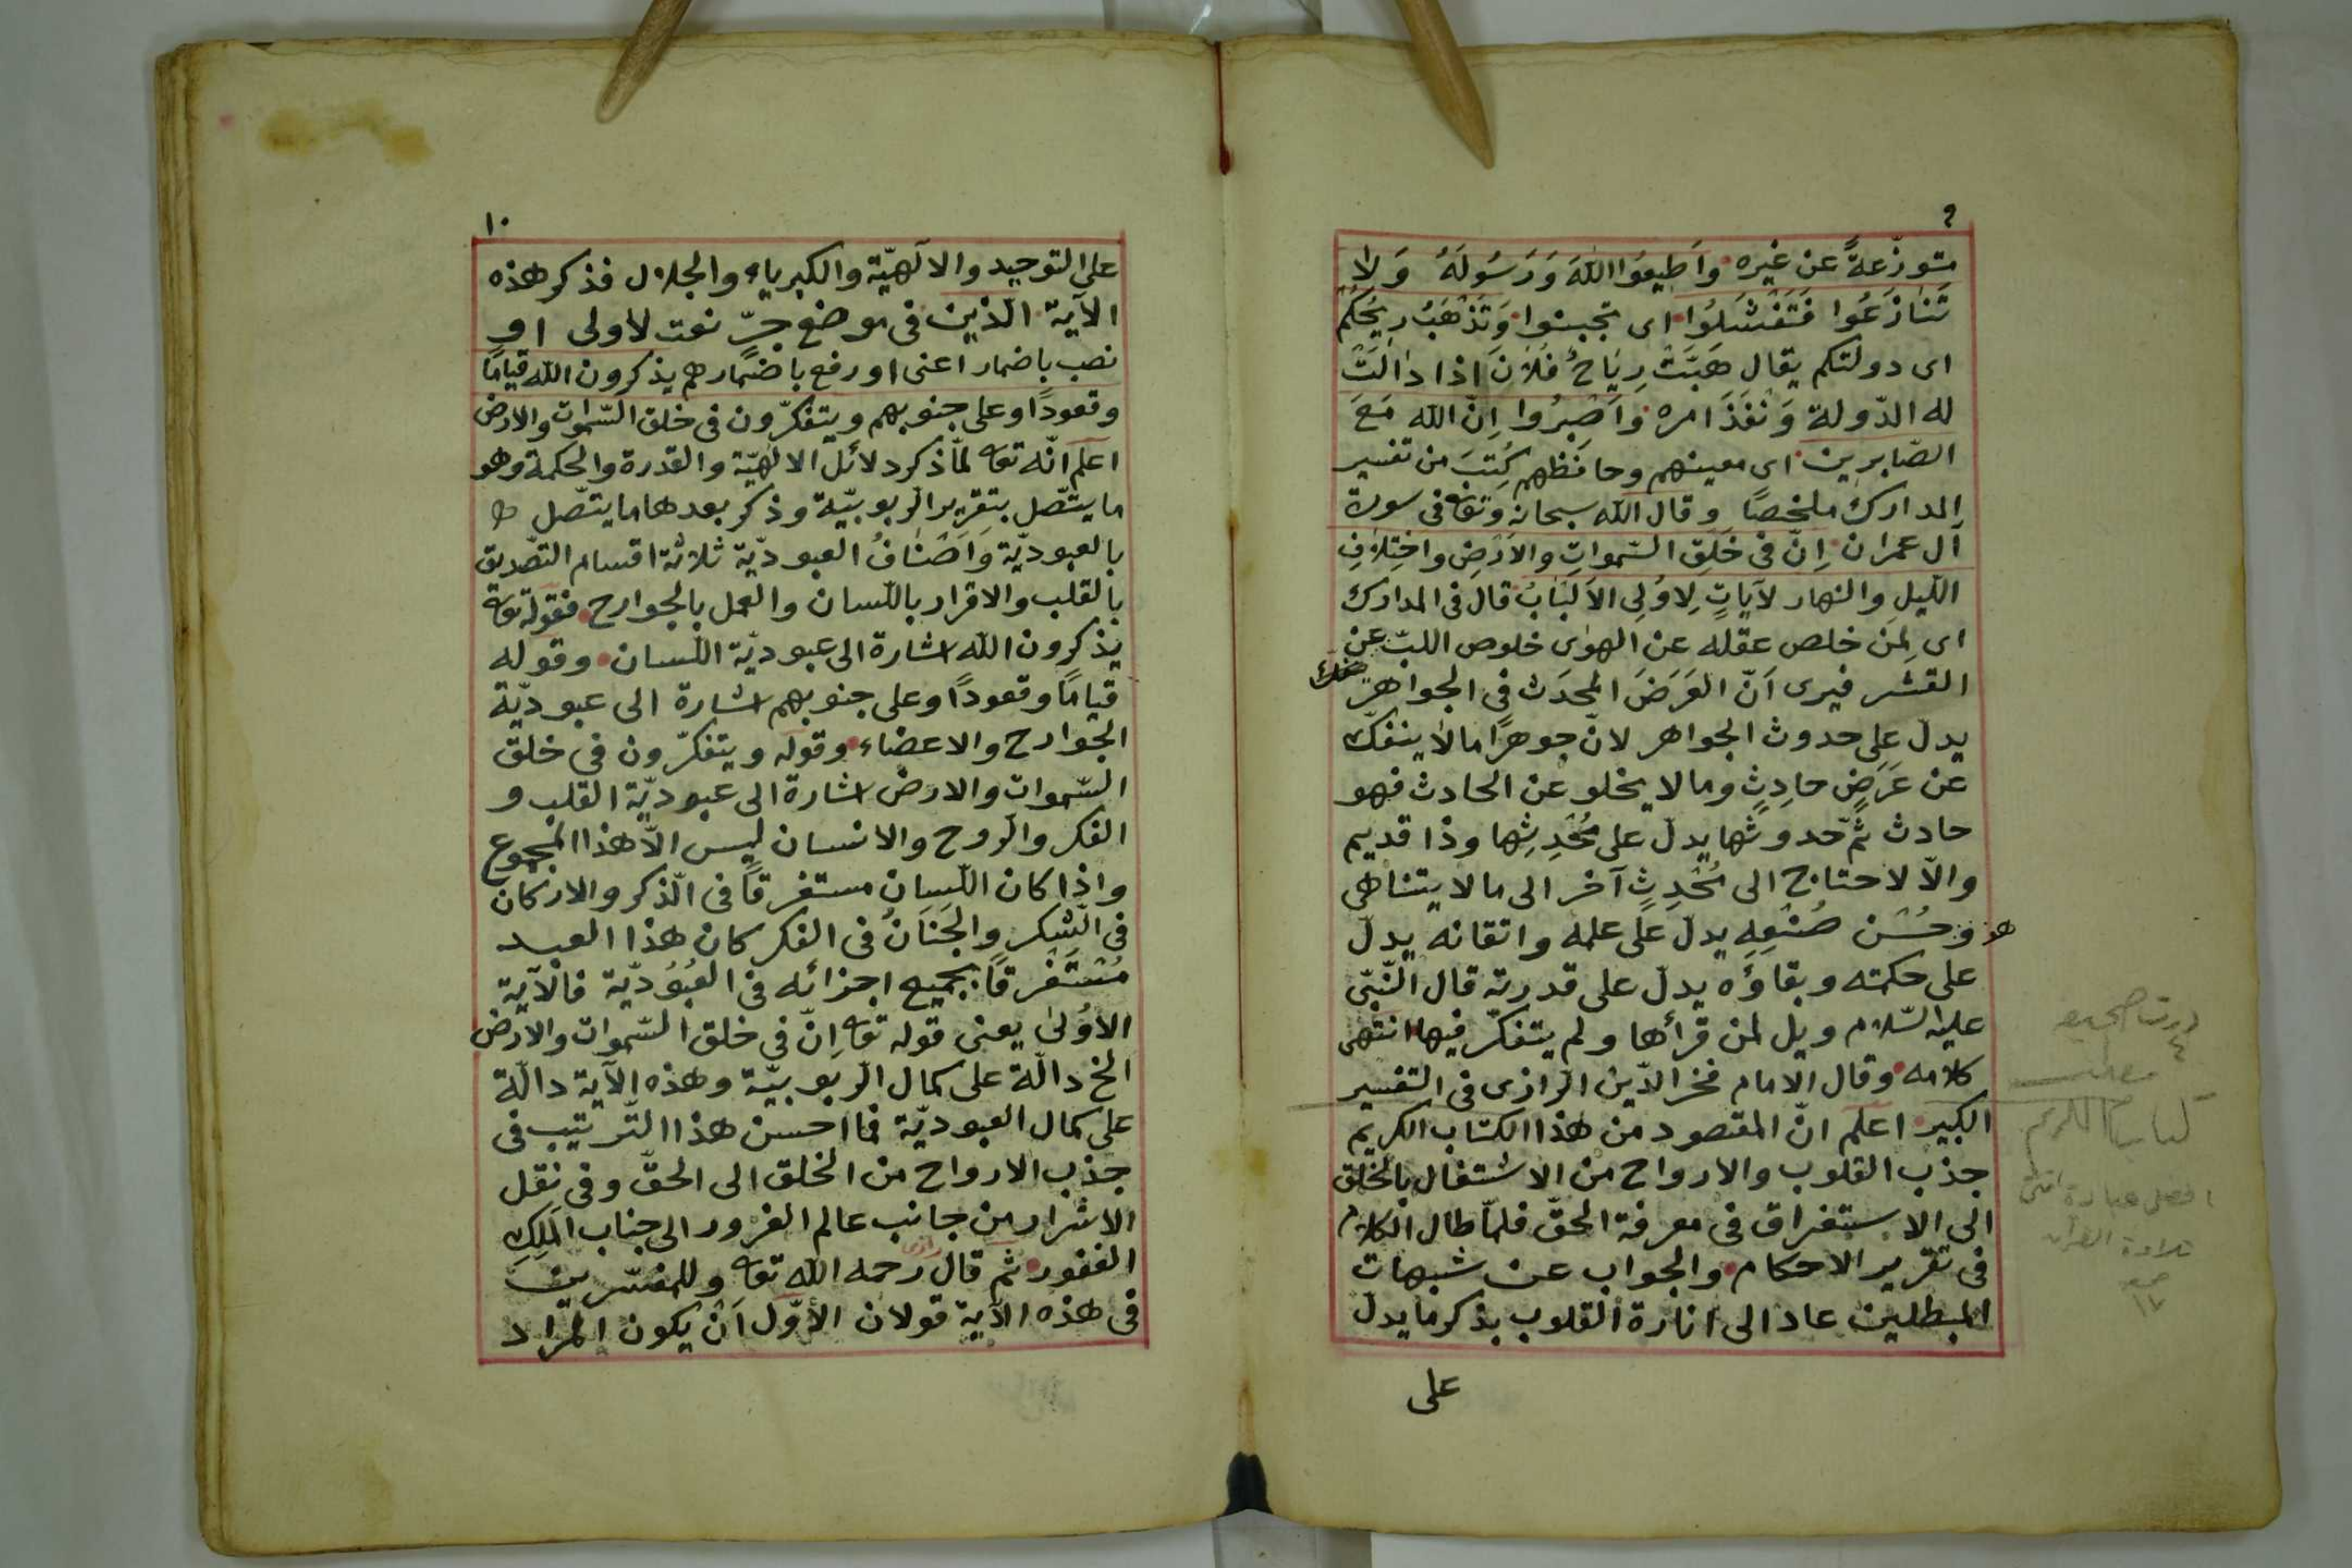 ٩
متوزّعةً عن غيره واَطِيعُوا اللهَ وَرَسُولَهُ وَلا
تَنَازَعُوا فَتَفْشَلُوا اى تجبنوا وَتَذْهَبُ رِيحُكُمْ
اى دولتكم يقال هَبَّتْ رِيَاحُ فُلَانَ اذا دالَتْ
له الدّولة وَنَفَذَ امره وَاَصْبِرُوا اِنّ الله مَعَ
الصّابرين اى معينهم وحافظهم كُتِبَ من تفسير
المدارك ملخصًا وقال الله سبحانه وتعا فى سورة
آل عمران اِنّ فى خَلقِ السّمواتِ والاَرْضِ واختِلافِ
اللّيلِ والنهار لآيَاتٍ لِاوُلِى الاَلْبَابُ قال فى المدارك
اى لمَن خلص عقله عن الهوٰى خلوص اللبّ عن
القشر فيرى اَنّ العَرَضَ المحدَث فى الجواهر
يدل على حدوث الجواهر لانّ جوهرًا مالا ينفكّ
عن عَرَضٍ حادِثٍ وما لا يخلو عن الحادث فهو
حادث ثمّ حدوثها يدل على مُحْدِثِها وذا قديم
والّا لاحتاج الى مُحْدِثٍ آخر الى ما لا يتناهى
وحُسْن صُنْعِهِ يدل على علمه واتقانه يدل
على حكمته وبقاؤه يدل على قدرته قال النّبىّ
عليه السّلام ويل لمن قرأها ولم يتفكّر فيها انتهى
كلامه وقال الامام فخر الدّين الرّازى فى التفسير
الكبير اعلم انّ المقصود من هذا الكتاب الكريم
جذب القلوب والارواح من الاشتغال بالخلق
الى الاستغراق فى معرفة الحقّ فلمّا طال الكلام
فى تقرير الاحكام والجواب عن شبهات
المبطلين عاد الى انارة القلوب بذكر ما يدل
على
افضل عبادة امتى
تلاوة القرآن
١٠
على التوحيد والالٓهيّة والكبرياء والجلال فذكر هذه
الآية الّذين فى موضع جرّ نعت لاولى او
نصب باضمار اعنى او رفع باضمارهم يذكرون الله قيامًا
وقعودًا وعلى جنوبهم ويتفكّرون فى خلق السّموات والارض
اعلم انّه تعا لمّا ذكر دلائل الالٓهيّة والقدرة والحكمة وهو
ما يتّصل بتقرير الرّبوبيّة وذكر بعدها ما يتّصل
بالعبوديّة وَاَصْنَافُ العبوديّة ثلاثة اقسام التصّديق
بالقلب والاقرار باللّسان والعمل بالجوارح فقوله تعا
يذكرون الله اشارة الى عبوديّة اللّسان وقوله
قيامًا وقعودًا وعلى جنوبهم اشارة الى عبوديّة
الجوارح والاعضاء وقوله ويتفكّرون فى خلق
السّموات والارض اشارة الى عبوديّة القلب و
الفكر والرّوح والانسان ليس الّا هذا المجموع
واذا كان اللّسان مستغرقاً فى الّذكر والاركان
فى الشّكر والجَنَانُ فى الفكر كان هذا العبد
مُسْتَغْرقاً بجميع اجزائه فى العُبُوُدّية فالآية
الاوُلىٰ يعنى قوله تعا اِنّ فى خلق السّموات والارض
الخ دالّة على كمال الرّبوبيّة وهذه الآية دالّة
على كمال العبوديّة فما احسن هذا التّرتيب فى
جذب الارواح من الخلق الى الحقّ وفى نقل
الاسْرار من جانب عالم الغرور الى جناب المَلِكِ
الغفور ثم قال رحمه الله تعا وللمفسّرين
فى هذه الآية قولان الأوّل اَنْ يكون المراد